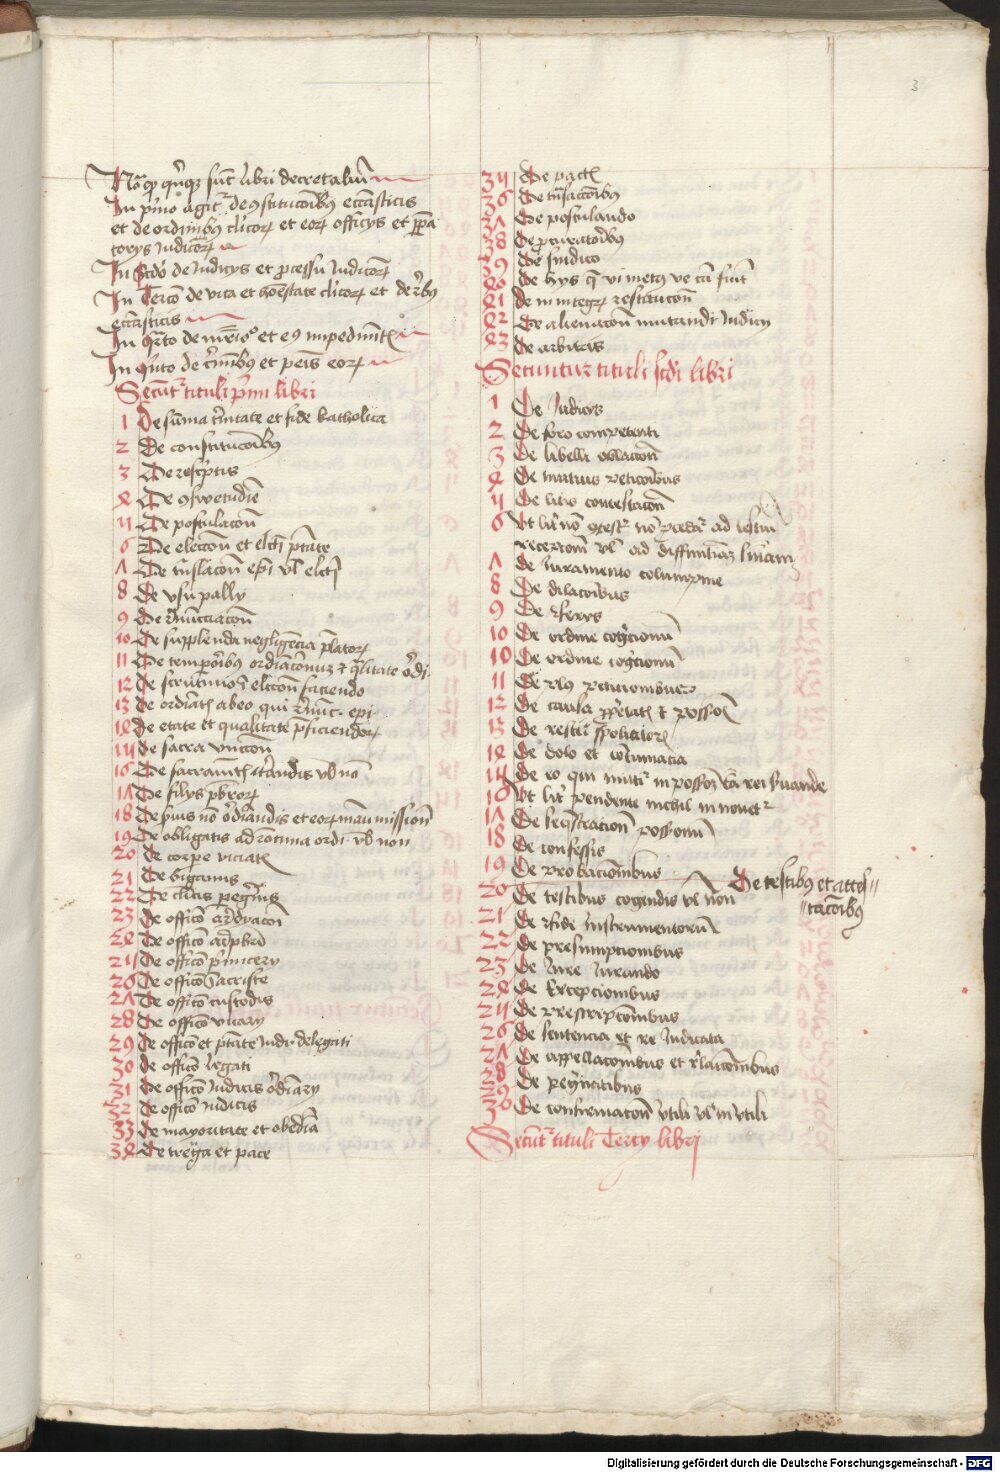 3
Nota quod quinque sunt libri decretalium
In primo agitur de constitucionibus ecclesiasticis
et de ordinibus clericorum et eorum officys et
iudiciorum
In secundo de Iudicys et processu Iudiciorum
In Tercio de vita et honestate clericorum et de rebus
ecclesiasticis
In quarto de matrimonio et eius impedimentis
In quinto de criminibus et penis eorum
Secuntur tituli primi libri
1 De summa trinitate et fide katholica
2 De constitucionibus
3 De rescriptis
4 De consuetudine
5 De postulacione
6 De eleccione et electi potestate
7 De translacione episcopi vel electi
8 De vsu pally
9 De renunciacione
10 De supplenda negligencia prelatorum
11 De temporibus ordinacionum et qualitate ordi.
12 De scrutinio in eleccione faciendo
13 De ordinatis ab eo qui renunc. epi.
14 De etate et qualitate preficiendorum
15 De sacra vnccione
16 De sacramentis iterandis vel non
17 De filys presbiterorum
18 De seruis non ordinandis et eorum manumissione
19 De obligatis ad raciocinia ordi. vel non
20 De corpore viciatis
21 De bigamis
22 De clericis peregrinis
23 De officio archidyaconi
24 De officio archipresbiteri
25 De officio primicery
26 De officio sacriste
27 De officio custodis
28 De officio vicary
29 De officio et potestate Iudi. delegati
30 De officio legati
31 De officio Iudicis ordinary
32 De officio Iudicis
33 De mayoritate et obediencia
34 De treuga et pace
35 De pactis
36 De transaccionibus
37 De postulando
38 De procuratoribus
39 De sindico
40 De hys que vi metus ve causa fiunt
41 De in integrum restitucione
42 De alienacione mutandi Iudicy
43 De arbitris
Secuntur tituli secundi libri
1 De Iudicys
2 De foro competenti
3 De libelli oblacione
4 De mutuis peticionibus
5 De litis contestacione
6 Vt lite non contestata non procedatur ad testium
recepcionem vel ad diffinitiuam sententiam
7 De Iuramento calumpnie
8 De dilacionibus
9 De feriys
10 De ordine cognicionum
10 De ordine cognicionum
11 De plus peticionibus
12 De causa proprietatis et possessionis
13 De restitucione spoliatorum
14 De dolo et contumacia
15 De eo qui mittitur in possessionem causa rei seruande
16 Vt lite pendente nichil innouetur
17 De sequestracione possessionum
18 De confessis
19 De probacionibus
De testibus et attes
tacionibus
20 De testibus cogendis vel non
21 De fide Instrumentorum
22 De presumpcionibus
23 De Iure Iurando
24 De Excepcionibus
25 De prescripcionibus
26 De sentencia et re Iudicata
27 De appellacionibus et relacionibus
28 De peregrinantibus
29
30 De confirmacione vtili vel invtili
Secuntur tituli Tercy libri
Digitalisierung gefördert durch die Deutsche Forschungsgemeinschaft - DFG